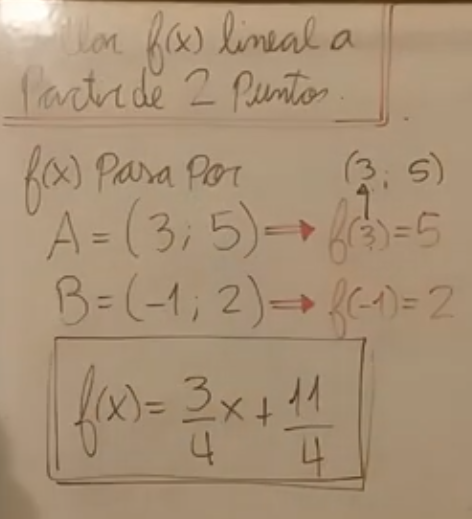 f(x) lineal a
Partir de 2 Puntos.
f(x) Pasa Por (3; 5)
A = (3; 5) ⇒ f(3) = 5
B = (-1; 2) ⇒ f(-1) = 2
f(x) = 3/4 x + 11/4